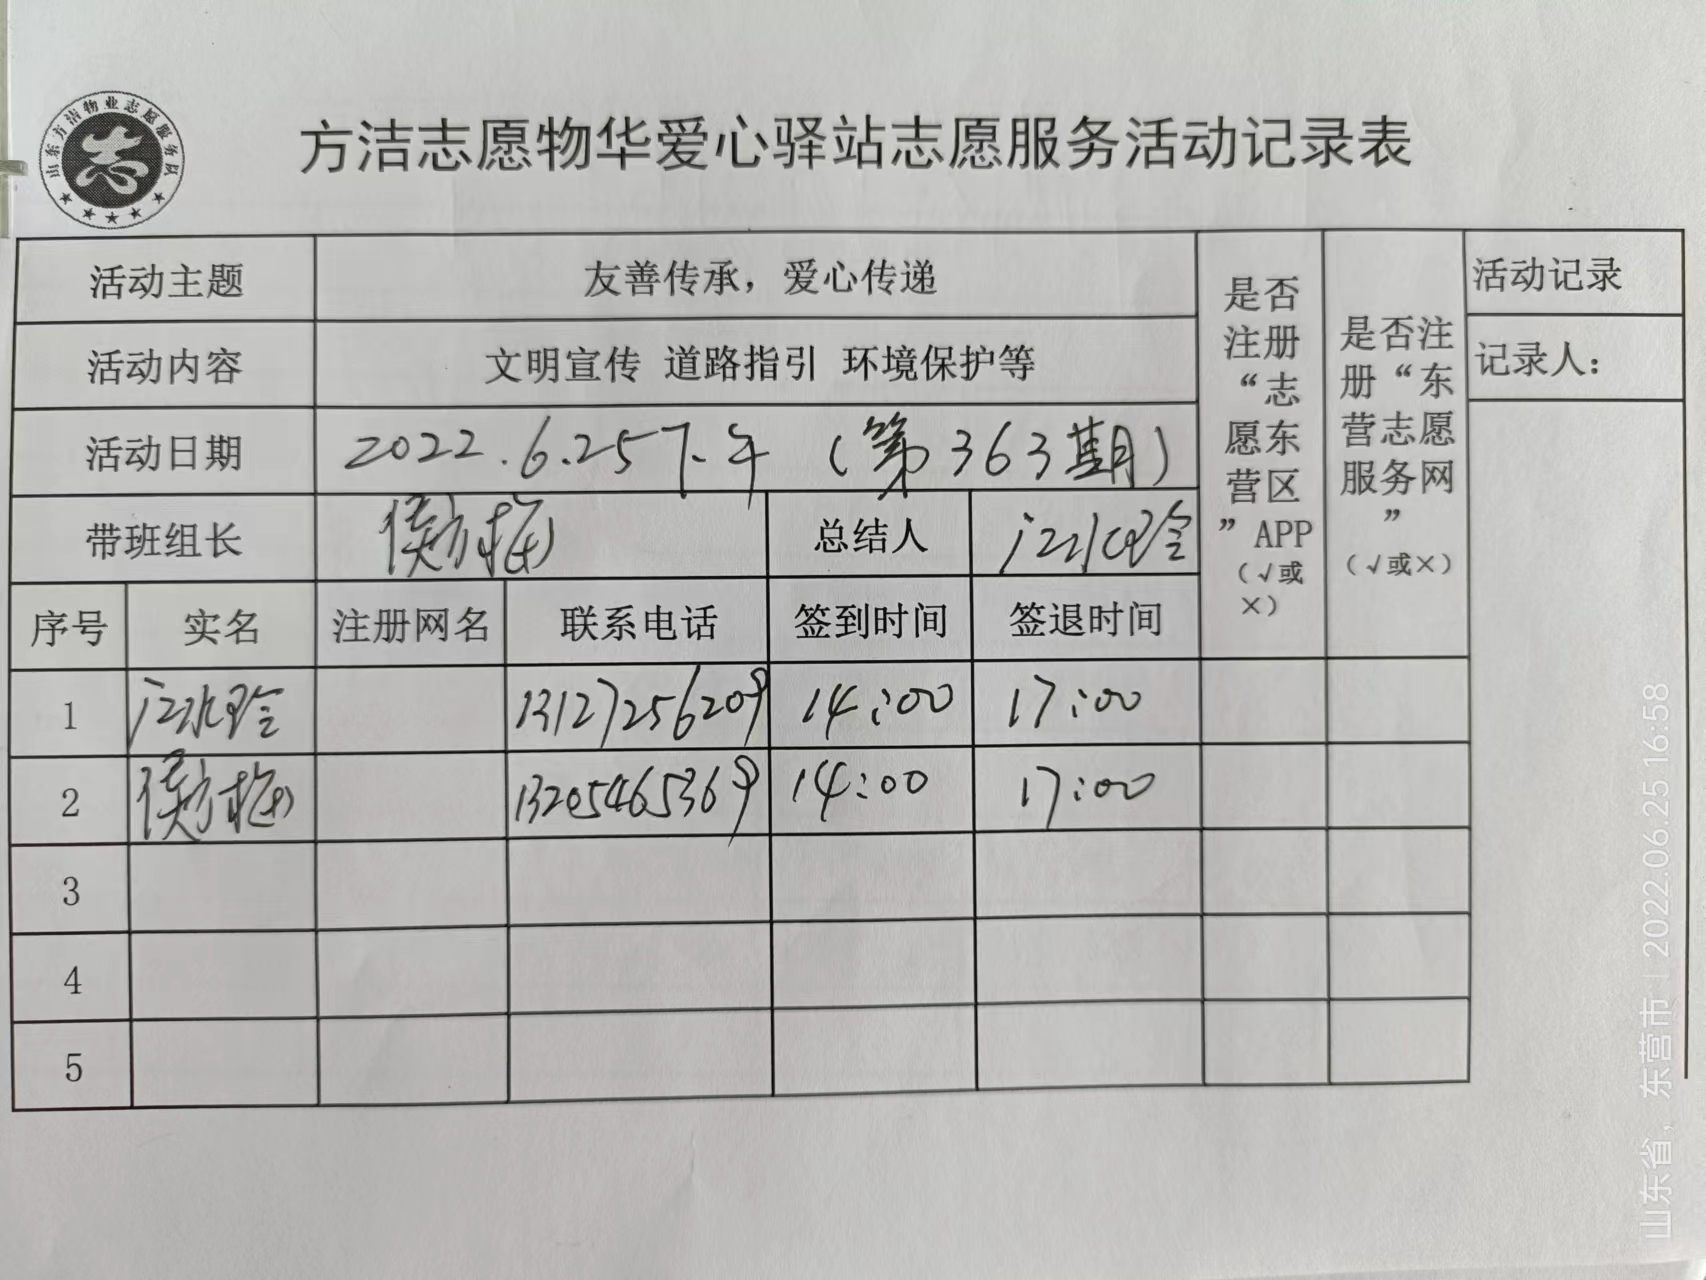 山东方洁物业志愿服务队
志
方洁志愿物华爱心驿站志愿服务活动记录表
活动主题 友善传承，爱心传递
活动内容 文明宣传 道路指引 环境保护等
活动日期 2022.6.25下午（第363期）
带班组长 侯方梅 总结人 江冰玲
是否
注册
“志
愿东
营区
”APP
（√或
×）
是否注
册“东
营志愿
服务网
”
（√或×）
活动记录
记录人：
序号 实名 注册网名 联系电话 签到时间 签退时间
1 江冰玲 13127256209 14:00 17:00
2 侯方梅 13205465369 14:00 17:00
3
4
5
山东省，东营市 | 2022.06.25 16:58